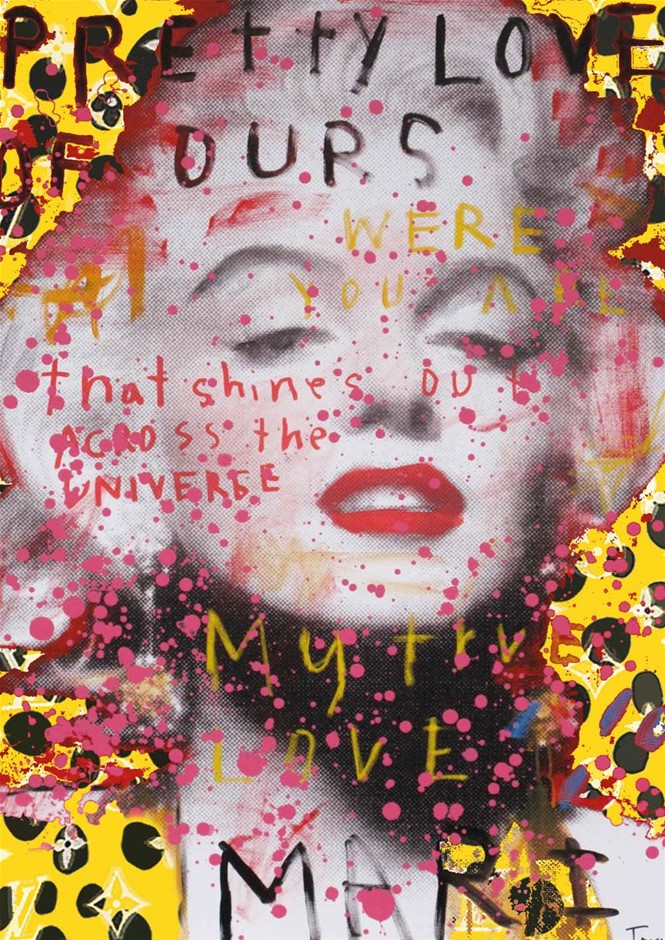 PREttY LOVE
OF OURS
WERE
YOU ARE
that shines OUt
ACROSS the
UNIVERSE
My true
LOVE
MARI